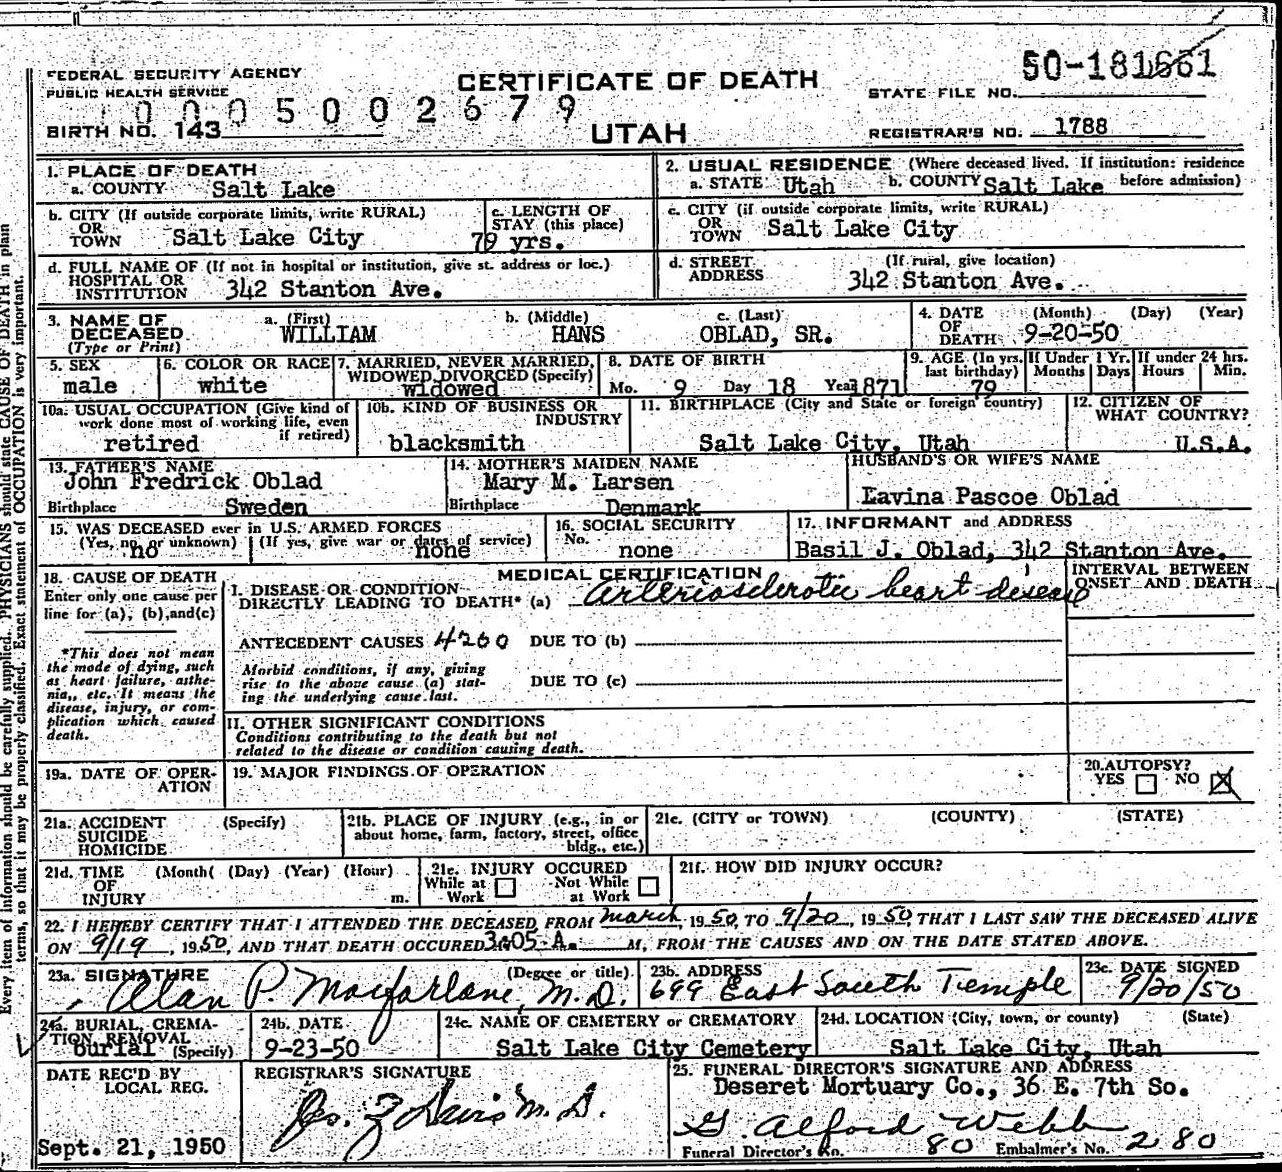 50-181661
FEDERAL SECURITY AGENCY
PUBLIC HEALTH SERVICE
CERTIFICATE OF DEATH
STATE FILE NO.
0005002679
BIRTH NO. 143
UTAH
REGISTRAR'S NO. 1788
1. PLACE OF DEATH
a. COUNTY Salt Lake
2. USUAL RESIDENCE (Where deceased lived. If institution: residence before admission)
a. STATE Utah b. COUNTY Salt Lake
b. CITY (If outside corporate limits, write RURAL)
OR
TOWN Salt Lake City
c. LENGTH OF
STAY (this place)
79 yrs.
c. CITY (if outside corporate limits, write RURAL)
OR
TOWN Salt Lake City
d. FULL NAME OF (If not in hospital or institution, give st. address or loc.)
HOSPITAL OR
INSTITUTION 342 Stanton Ave.
d. STREET (If rural, give location)
ADDRESS 342 Stanton Ave.
3. NAME OF
DECEASED
(Type or Print)
a. (First) b. (Middle) c. (Last)
WILLIAM HANS OBLAD, SR.
4. DATE (Month) (Day) (Year)
OF
DEATH 9-20-50
5. SEX
male
6. COLOR OR RACE
white
7. MARRIED, NEVER MARRIED,
WIDOWED, DIVORCED (Specify)
widowed
8. DATE OF BIRTH
Mo. 9 Day 18 Year 1871
9. AGE (In yrs. last birthday)
79
If Under 1 Yr.
Months Days
If under 24 hrs.
Hours Min.
10a. USUAL OCCUPATION (Give kind of
work done most of working life, even
if retired)
retired
10b. KIND OF BUSINESS OR
INDUSTRY
blacksmith
11. BIRTHPLACE (City and State or foreign country)
Salt Lake City, Utah
12. CITIZEN OF
WHAT COUNTRY?
U.S.A.
13. FATHER'S NAME
John Fredrick Oblad
Birthplace Sweden
14. MOTHER'S MAIDEN NAME
Mary M. Larsen
Birthplace Denmark
HUSBAND'S OR WIFE'S NAME
Lavina Pascoe Oblad
15. WAS DECEASED ever in U.S. ARMED FORCES
(Yes, no, or unknown) (If yes, give war or dates of service)
no none
16. SOCIAL SECURITY
No.
none
17. INFORMANT and ADDRESS
Basil J. Oblad, 342 Stanton Ave.
18. CAUSE OF DEATH
Enter only one cause per
line for (a), (b), and (c)
*This does not mean
the mode of dying, such
as heart failure, asthe-
nia, etc. It means the
disease, injury, or com-
plication which caused
death.
MEDICAL CERTIFICATION
I. DISEASE OR CONDITION
DIRECTLY LEADING TO DEATH* (a) Arteriosclerotic heart disease
INTERVAL BETWEEN
ONSET AND DEATH
ANTECEDENT CAUSES 4200 DUE TO (b)
Morbid conditions, if any, giving
rise to the above cause (a) stat-
ing the underlying cause last.
DUE TO (c)
II. OTHER SIGNIFICANT CONDITIONS
Conditions contributing to the death but not
related to the disease or condition causing death.
19a. DATE OF OPER-
ATION
19. MAJOR FINDINGS OF OPERATION
20. AUTOPSY?
YES NO X
21a. ACCIDENT (Specify)
SUICIDE
HOMICIDE
21b. PLACE OF INJURY (e.g., in or
about home, farm, factory, street, office
bldg., etc.)
21c. (CITY or TOWN) (COUNTY) (STATE)
21d. TIME (Month( (Day) (Year) (Hour)
OF
INJURY m.
21e. INJURY OCCURED
While at Work Not While at Work
21f. HOW DID INJURY OCCUR?
22. I HEREBY CERTIFY THAT I ATTENDED THE DECEASED FROM March, 1950, TO 9/20, 1950, THAT I LAST SAW THE DECEASED ALIVE
ON 9/19, 1950, AND THAT DEATH OCCURED 3:05 A. M, FROM THE CAUSES AND ON THE DATE STATED ABOVE.
23a. SIGNATURE (Degree or title)
Alan P. Macfarlane, M.D.
23b. ADDRESS
699 East South Temple
23c. DATE SIGNED
9/20/50
24a. BURIAL, CREMA-
TION, REMOVAL
burial (Specify)
24b. DATE
9-23-50
24c. NAME OF CEMETERY or CREMATORY
Salt Lake City Cemetery
24d. LOCATION (City, town, or county) (State)
Salt Lake City, Utah
DATE REC'D BY
LOCAL REG.
Sept. 21, 1950
REGISTRAR'S SIGNATURE
Jos. Z Davis M.D.
25. FUNERAL DIRECTOR'S SIGNATURE AND ADDRESS
Deseret Mortuary Co., 36 E. 7th So.
G. Alford Webb
Funeral Director's No. 80 Embalmer's No. 280
Every item of information should be carefully supplied. PHYSICIANS should state CAUSE OF DEATH in plain
terms, so that it may be properly classified. Exact statement of OCCUPATION is very important.